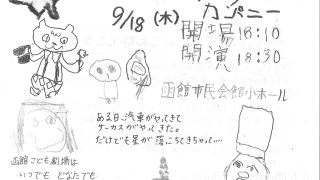 9/18 (木)
カンパニー
開場 18:10
開演 18:30
函館市民会館小ホール
ある日、汽車がやってきて
サーカスがやってきた。
だけども星が落っこちてきちゃって……
函館こども劇場は
いつでも どなたでも